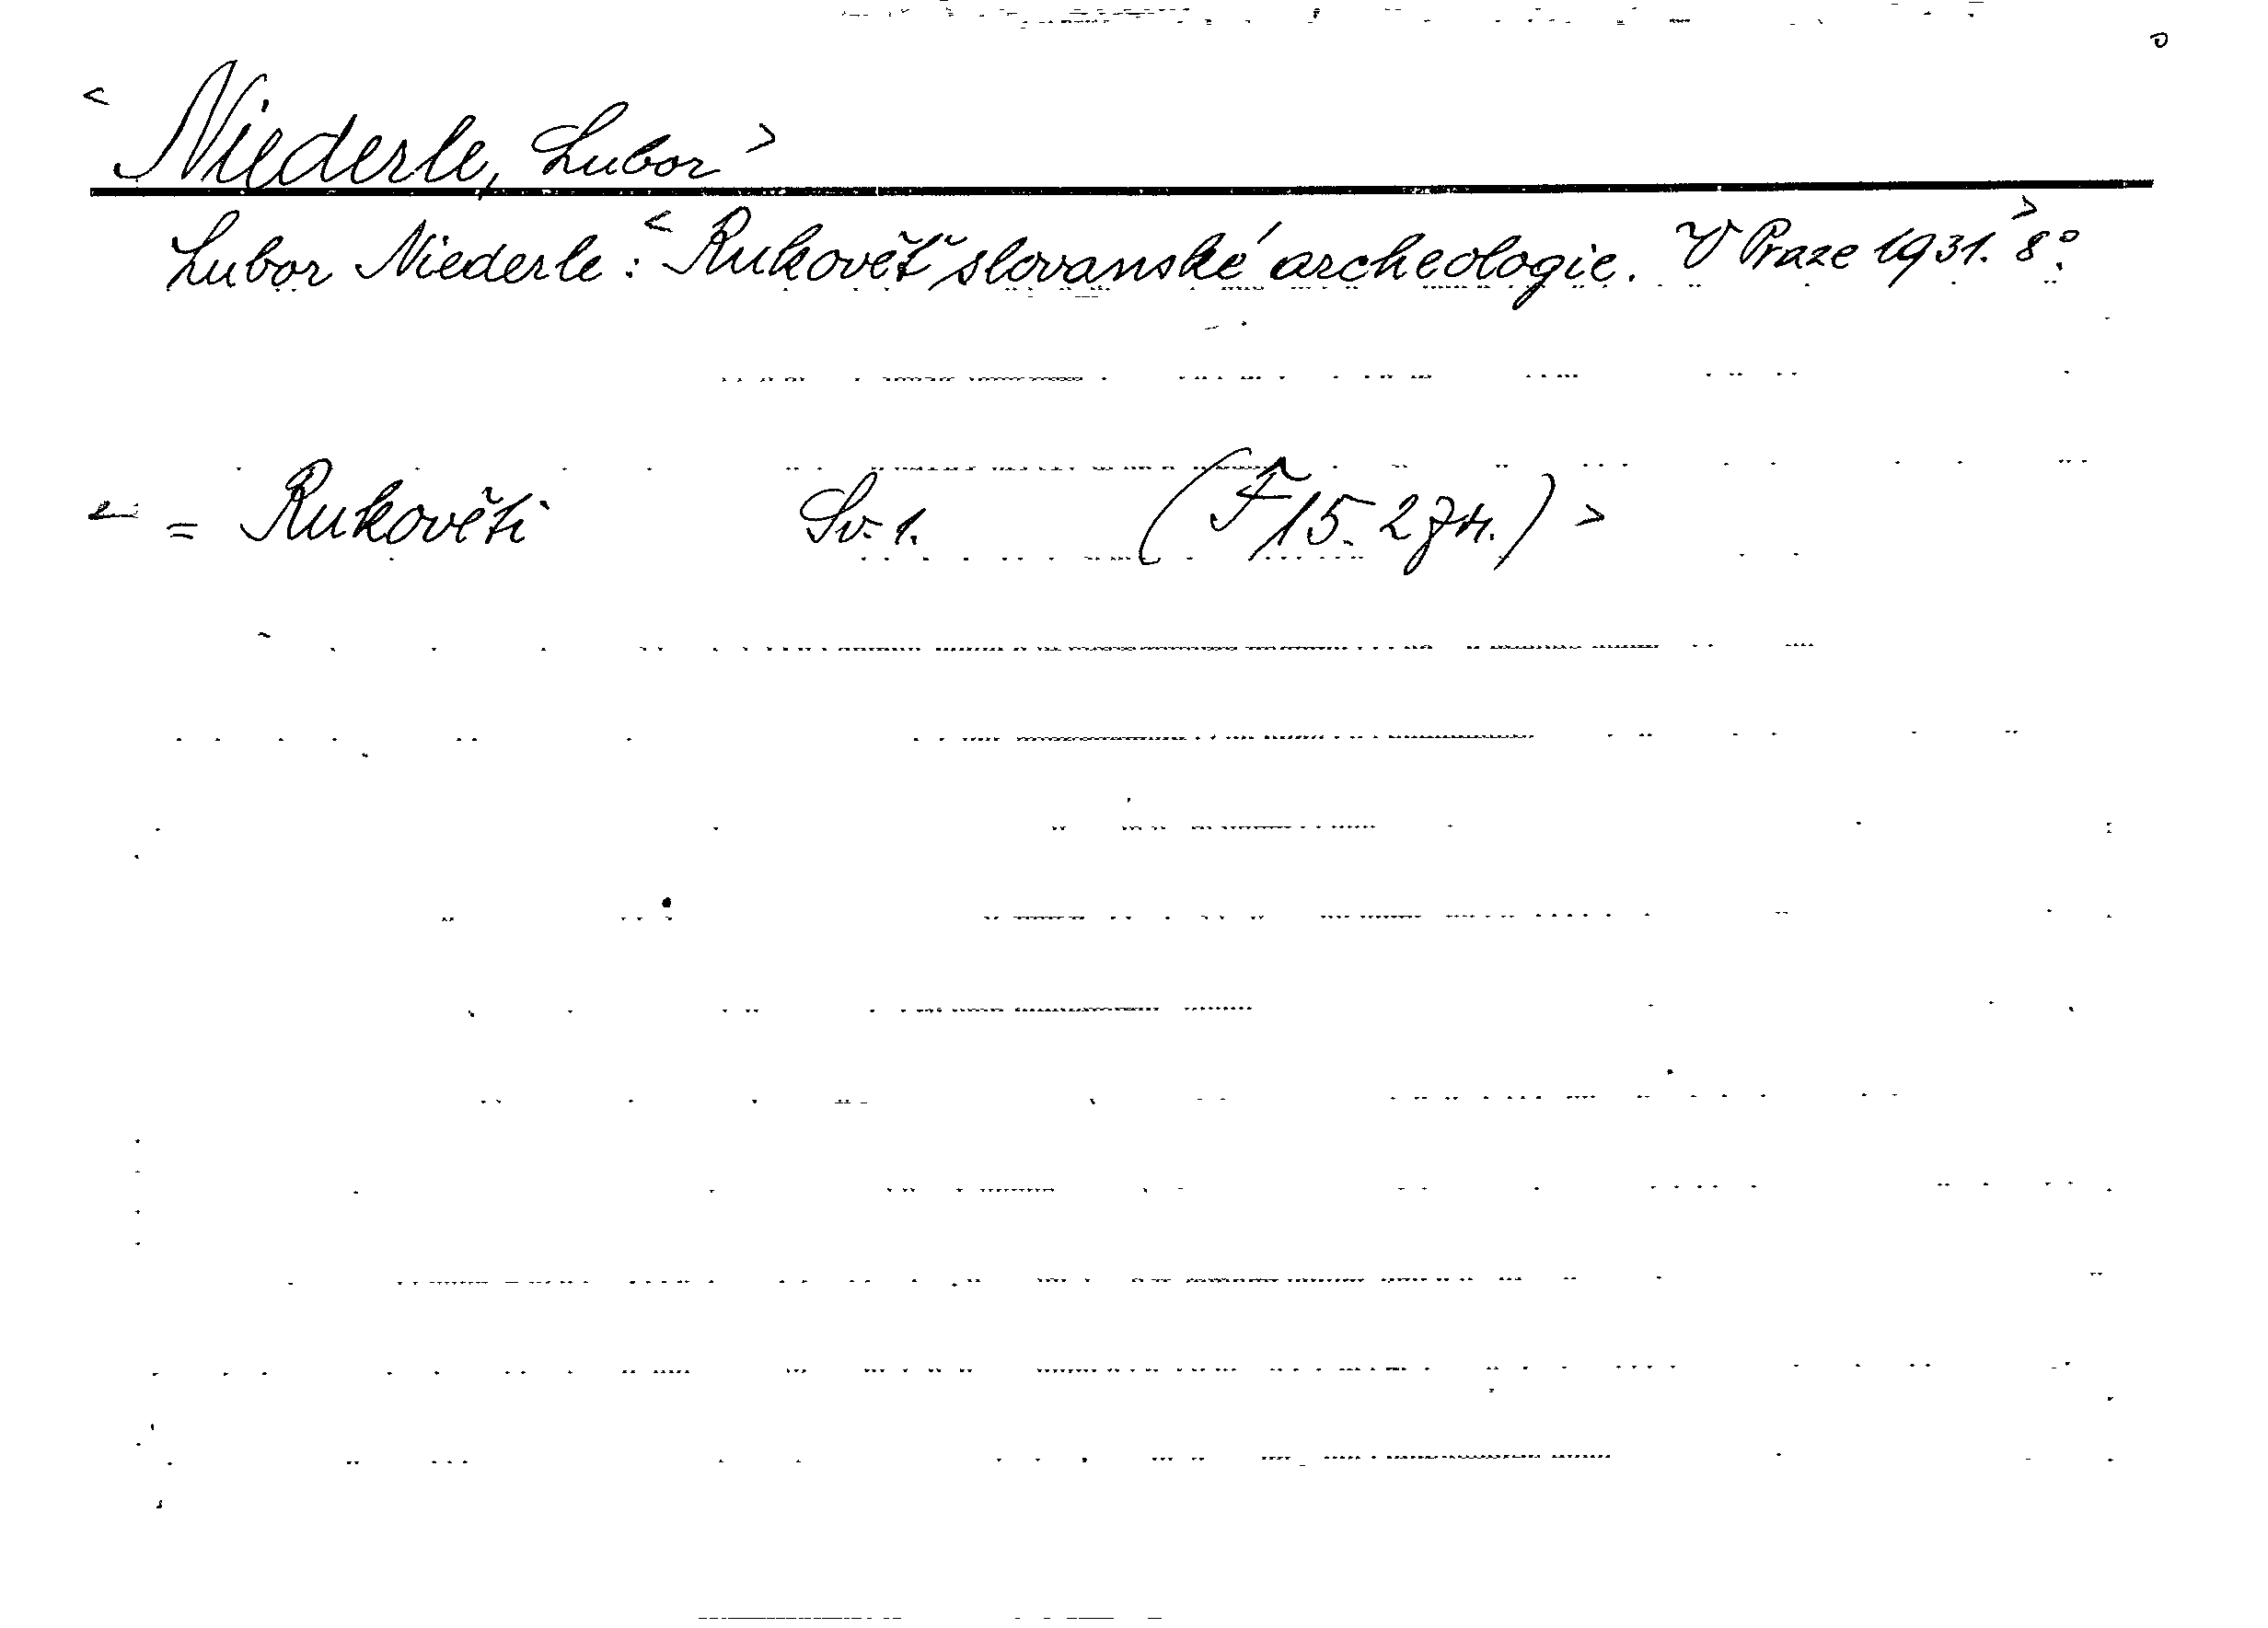 < Niederle, Lubor >
Lubor Niederle: < Rukověť slovanské archeologie. V Praze 1931. > 8°.
= Rukověti Sv. 1. (F 15. 274.) >